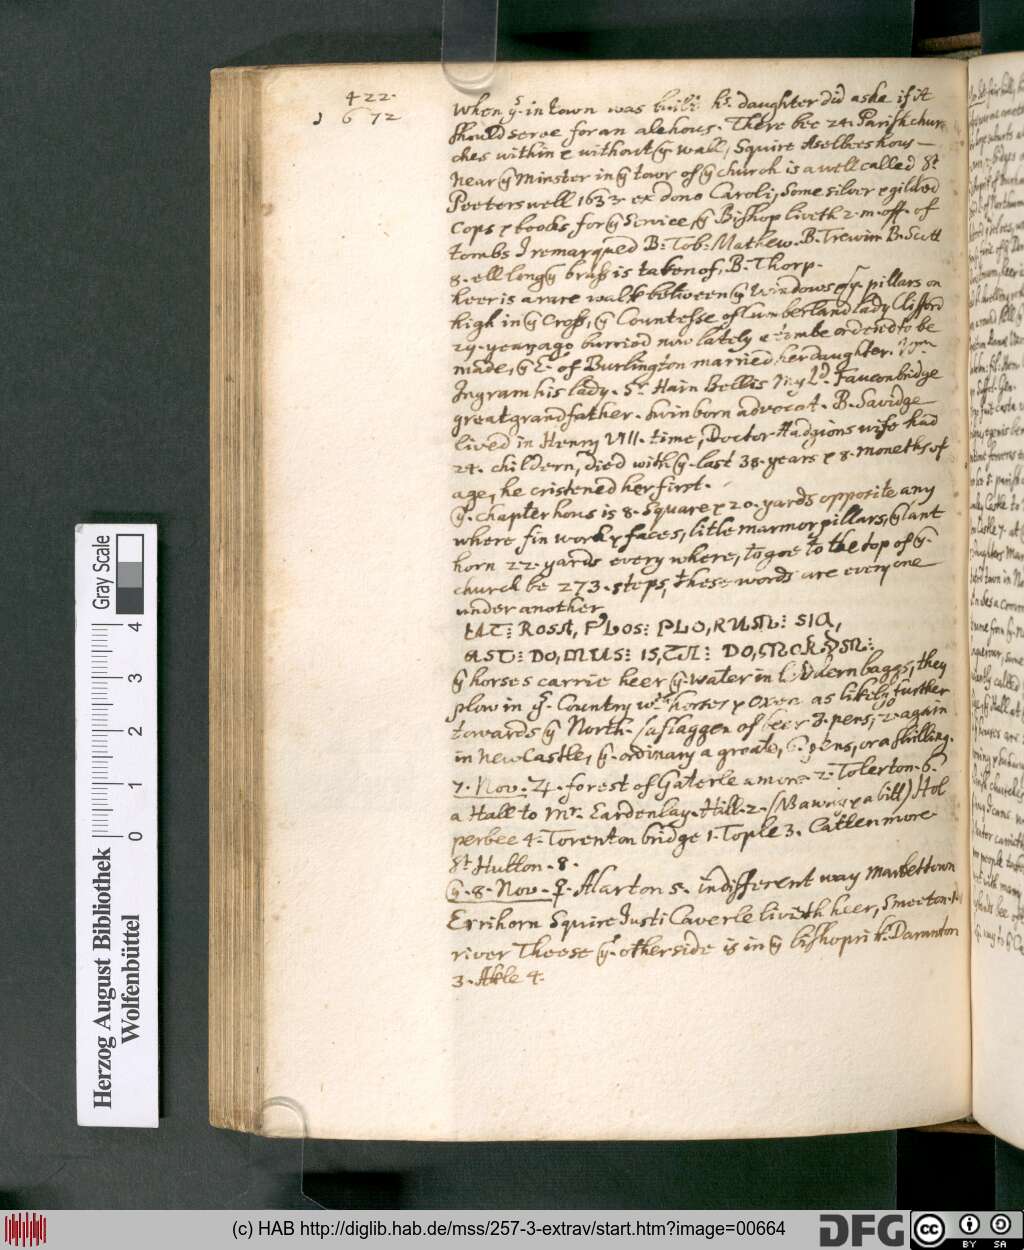 422.
1672
When ye. in town was built hs. daughter did aske if it
should serve for an alehous. There bee 24. Parish chur
ches within & without ye wall, Squire Aselbeeshous —
Near ye Minster in ye towr of ye church is a well called St
Peeterswell 1633. ex dono Caroli, some silver & gilded
Cops & books, for ye Service, ye Bishop liveth 2. m. off. of
tombs I remarqued B. Tob: Mathew. B. Trewim B. Scutt
8. ell long ye brass is taken of, B. Thorp.
heer is a rare walk between ye Windows & ye. pillars on
high in ye Cross, ye Countesse of Cumberland lady Clifford
24. years ago burried now lately a tombe ordered to be
made, ye E. of Burlington married her daughter.
Ingram his lady. Sr. Hain Bellis My Ld. Fauconbridge
great grandfather. Swinborn advocat. B. Savidge
lived in Henry VIII. time, Doctor Hadgions wife had
24. childern, died with ye. last 38. years & 8. moneths of
age, he cristened her first.
ye. chapterhous is 8. square & 20. yards opposite any
where fin work & faces, litle marmor pillars, ye lant
horn 22. yards every where, to goe to the top of ye.
church be 273. steps, these words are every one
under another
UT: ROSA, FLOS: FLO,RUM: SIC,
EST: DO,MUS: IS,TA: DO,MORUM:
ye horses carrie heer ye. water in ledern baggs, they
plow in ye. Country wth horses & oxen as likely further
towards ye North. (a flaggen of beer 3. pens, 2. again
in NewCastle, ye. ordinary a groate, 6. pens, or a shilling.
7. Nov. 4. forest of Gaterle a more 2. Tolerton. 6.
a Hall to Mr. Eardenlay. Hill. 2. (Bawns & a bitt) Hol
perbee 4. Torenton bridge 1. Tople 3. Catten more
St Hutton. 8.
ye. 8. Nov. Alarton 5. indifferent way market town
Errihorn Squire Justi Caverle liveth heer, Smeeton. 1.
river Theese ye. otherside is in ye bishoprik. Darnnton
3. Akle 4.
Herzog August Bibliothek
Wolfenbüttel
Gray Scale
0 1 2 3 4
(c) HAB http://diglib.hab.de/mss/257-3-extrav/start.htm?image=00664
DFG
cc BY SA